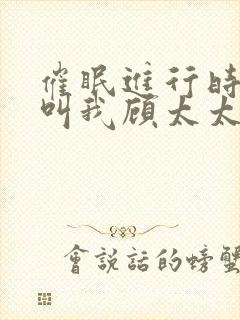 催眠進行時
叫我顧太太
會說話的螃蟹